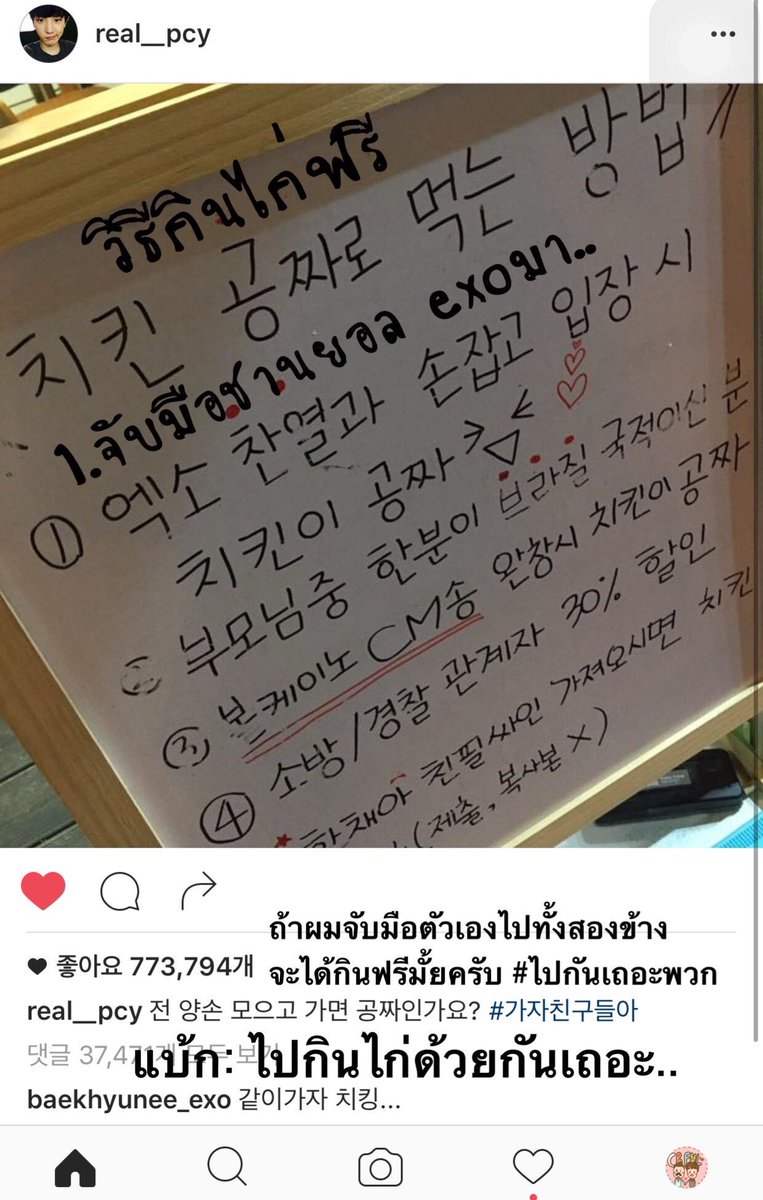 real__pcy
วิธีกินไก่ฟรี
치킨 공짜로 먹는 방법
1.จับมือชานยอล exoมา..
① 엑소 찬열과 손잡고 입장 시
치킨이 공짜
② 부모님중 한분이 브라질 국적이신 분
③ 볼케이노 CM송 완창시 치킨이 공짜
④ 소방/경찰 관계자 30% 할인
한채아 친필싸인 가져오시면 치킨
(제출, 복사본 X)
ถ้าผมจับมือตัวเองไปทั้งสองข้าง
♥ 좋아요 773,794개
จะได้กินฟรีมั้ยครับ #ไปกันเถอะพวก
real__pcy 전 양손 모으고 가면 공짜인가요? #가자친구들아
댓글 37,471개 모두 보기
แบ้ก: ไปกินไก่ด้วยกันเถอะ..
baekhyunee_exo 같이가자 치킹...